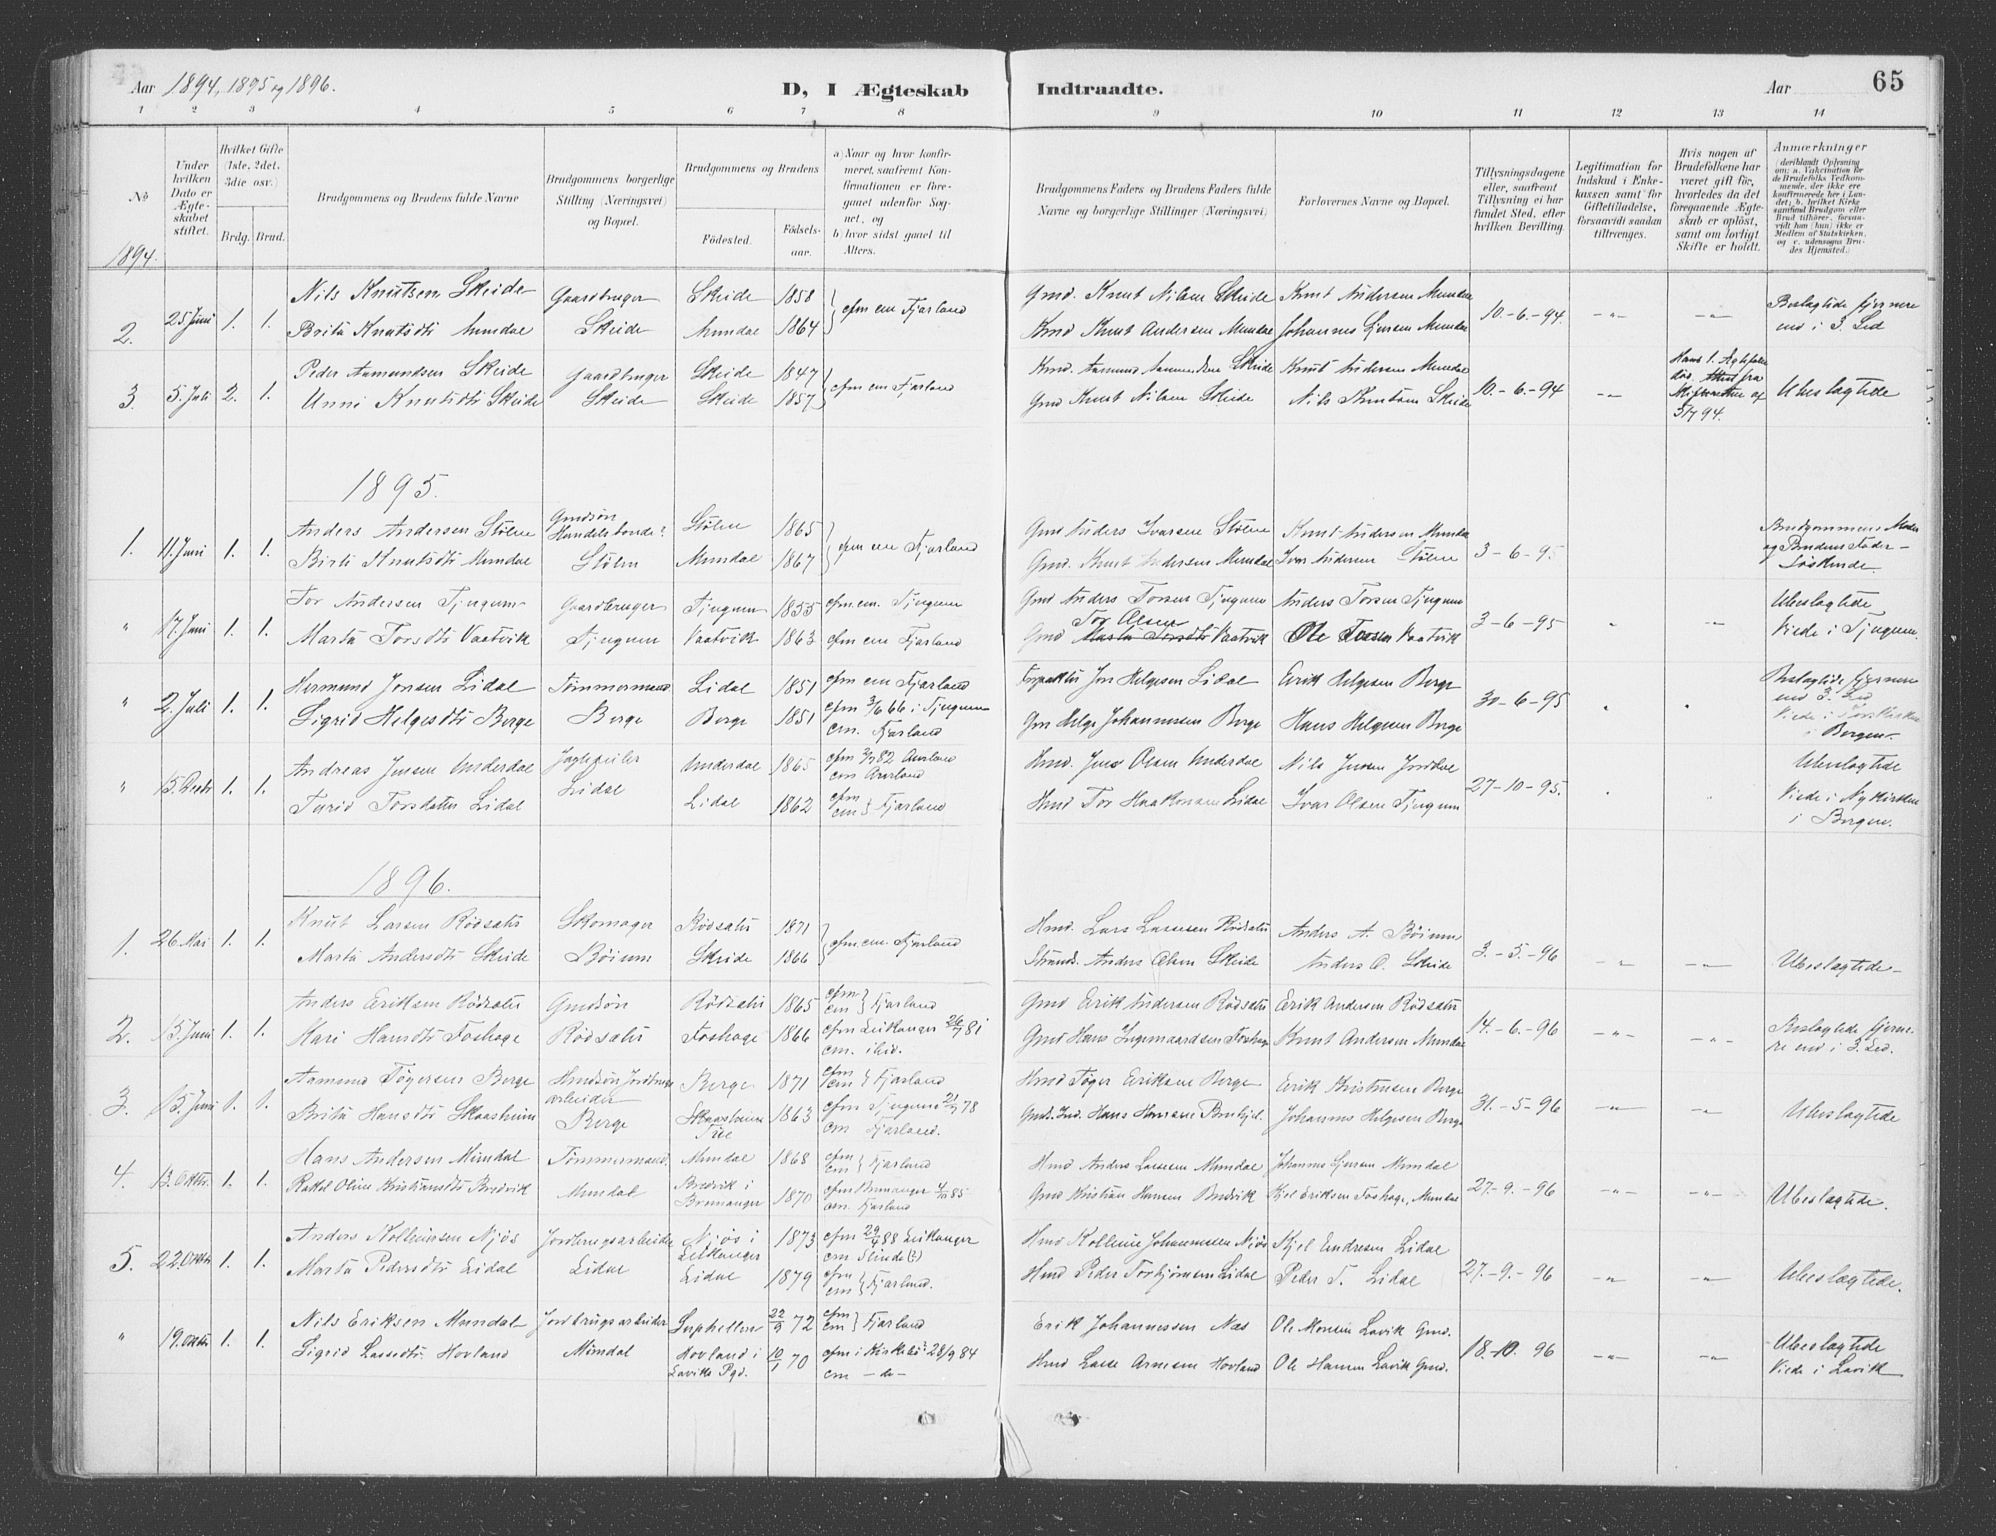 Aar 1894, 1895 og 1896.
D, I Ægteskab Indtraadte.
Aar 65
1 2 3 4 5 6 7 8 9 10 11 12 13 14
No
Under hvilken Dato er Ægteskabet stiftet.
Hvilket Gifte (1ste, 2det, 3die osv.)
Brdg. Brud.
Brudgommens og Brudens fulde Navne
Brudgommens borgerlige Stilling (Næringsvei) og Bopæl.
Brudgommens og Brudens
Fødested. Fødselsaar.
a) Naar og hvor konfirmeret, saafremt Konfirmationen er foregaaet udenfor Sognet, og
b) hvor sidst gaaet til Alters.
Brudgommens Faders og Brudens Faders fulde Navne og borgerlige Stillinger (Næringsvei)
Forlovernes Navne og Bopæl.
Tillysningsdagene eller, saafremt Tillysning ei har fundet Sted, efter hvilken Bevilling.
Legitimation for Indskud i Enkekassen samt for Giftetilladelse, forsaavidt saadan tiltrænges.
Hvis nogen af Brudefolkene har været gift før, hvorledes da det foregaaende Ægteskab er opløst, samt om lovligt Skifte er holdt.
Anmærkninger
(deriblandt Oplysning om: a. Vakcination for de Brudefolks Vedkommende, der ikke ere konfirmerede her i Landet; b. hvilket Kirkesamfund Brudgom eller Brud tilhører, forsaavidt han (hun) ikke er Medlem af Statskirken, og c. udensogns Brudes Hjemsted.)
1894.
Nils Knutsen Skeide Gaardbruger Skeide 1858 cfm cm Fjærland Gmd. Knut Nilsen Skeide Knut Andersen Mundal
2. 25 Juni 1. 1. Brita Knutsdtr Mundal Skeide Mundal 1864 Gmd Knut Andersen Mundal Johannes Mundal 10-6-94 -„- -„- Beslægtede fjernere end i 3. Led
Peder Aamundsen Skeide Gaardbruger Skeide 1847 cfm cm Fjærland Aamund Skeide Knut Andersen Mundal
3. 5. Juli 2. 1. Unni Knutsdtr Skeide Skeide Skeide 1857 Gmd Knut Nilsen Skeide Nils Knutsen Skeide 10-6-94 -„- Hans 1. Ægtefælle død. fra af 5/7 94. Ubeslægtede
1895.
Anders Andersen Stølen Gmdsøn Stølen 1865 cfm cm Fjærland Gmd Anders Ivarsen Stølen Knut Andersen Mundal
1. 11. Juni 1. 1. Birte Knutsdtr Mundal Stølen Mundal 1867 Gmd. Knut Andersen Mundal Ivar Andersen Stølen 3-6-95 Brudgommens Moder og Brudens Fader Søskende.
Tor Andersen Tjugum Gaardbruger Tjugum 1855 cfm cm. Tjugum Gmd Anders Torsen Tjugum Anders Torsen Tjugum
„ 17. Juni 1. 1. Marta Torsdtr Vaatvik Tjugum Vaatvik 1863 cfm cm Fjærland Gmd Tor Olsen Vaatvik Ole Torsen Vaatvik 3-6-95 „ „ Ubeslægtede Viede i Tjugum.
Hermund Jonsen Lidal Tømmermand Lidal 1851 cfm cm Fjærland Jon Helgesen Lidal Eirik Helgesen Berge
„ 2. Juli 1. 1. Sigrid Helgesdtr Berge Berge Berge 1851 cfm 3/6 66 i Tjugum cm. Fjærland Helge Johannessen Berge Hans Helgesen Berge 30-6-95 „ „ Beslægtede fjernere end 3. Led Viede i i Bergen.
Andreas Jensen Underdal Underdal 1865 cfm 82 Aurland cm Aurland Hmd. Jens Olsen Underdal Nils Jensen
„ 15. 1. 1. Turid Torsdatter Lidal Lidal Lidal 1862 cfm cm Fjærland Hmd Tor Haakonsen Lidal Ivar Olsen Tjugum 27-10-95. „ „ Ubeslægtede Viede i Nykirken i Bergen.
1896.
Knut Larsen Rødsæter Skomager Rødsæter 1871 cfm cm. Fjærland Hmd. Lars Lassesen Rødsæter Anders A. Bøium
1. 26 Mai 1. 1. Marta Andersdtr Skeide Bøium Skeide 1866 Anders Olsen Skeide Anders O. Skeide 3-5-96 -„- -„- Ubeslægtede
Anders Eriksen Rødsæter Gmdsøn Rødsæter 1865 cfm cm Fjærland Gmd Erik Andersen Rødsæter Erik Andersen Rødsæter
2. 15 Juni 1. 1. Kari Hansdtr Foshage Rødsæter Foshage 1866 cfm Leikanger 81 cm. ibid. Gmd Hans Foshage Knut Andersen Mundal 14-6-96 -„- -„- Beslægtede fjernere end i 3. Led.
Aamund Tøgersen Berge Hmdsøn Jordbrugsarbeider Berge 1871 cfm cm Fjærland Hmd Tøger Eriksen Berge Erik Kristensen Berge
3. 15 Juni 1. 1. Brita Hansdtr Skaasheim Berge Skaasheim 1863 cfm Tjugum 78 cm Fjærland. Hans Hansen Johannes Helgesen Berge 31-5-96 -„- -„- Ubeslægtede
Hans Andersen Mundal Tømmermand Mundal 1868 cfm cm Fjærland Hmd Anders Lassesen Mundal Johannes Mundal
4. 13. Oktbr. 1. 1. Rakel Oline Kristiansdtr Bredvik Mundal Bredvik i Bremanger 1870 cfm Bremanger 85 cm. Fjærland Gmd Kristian Hansen Bredvik Kjel Eriksen Foshage, Mundal 27-9-96 -„- -„- Ubeslægtede.
Anders Kolleinsen Njøs Jordbrugsarbeider Njøs i Leikanger 1873 cfm 29/4 88 Leikanger cm Slinde(?) Hmd Kollein Johannessen Njøs Kjel Endresen Lidal
5. 22. Oktbr 1. 1. Marta Pedersdtr Lidal Lidal Lidal 1879 cfm cm Fjærland. Hmd Peder Torbjørnsen Lidal Peder T. Lidal 27-9-96 -„- -„- Ubeslægtede.
Nils Eriksen Mundal Jordbrugsarbeider Suphellen 22/9 72 cfm cm Fjærland Erik Johannessen Næs Ole Monsen Lavik Gmd.
„ 19. Oktbr 1. 1. Sigrid Lassedtr. Hovland Mundal Hovland i Laviks Pgd. 10/1 70 cfm i Kirkebø 28/9 84 cm -do- Hmd Lasse Arnesen Hovland Ole Hansen Lavik Gmd. 18-10-96 -„- -„- Ubeslægtede Viede i Lavik